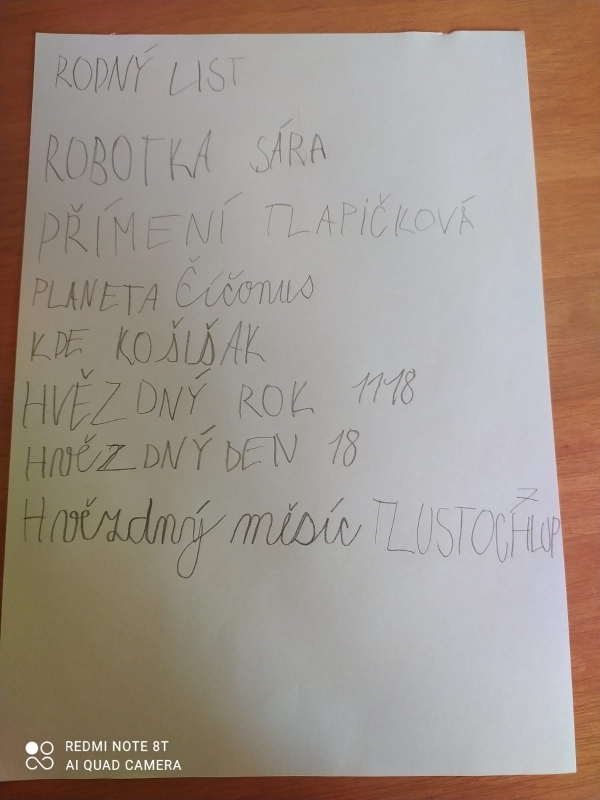 RODNÝ LIST
ROBOTKA SÁRA
PŘÍMENÍ TLAPIČKOVÁ
PLANETA Číčonus
KDE KOŠIŠAK
HVĚZDNÝ ROK 1118
HvěZDNÝ DEN 18
Hvězdný měsíc
REDMI NOTE 8T
AI QUAD CAMERA